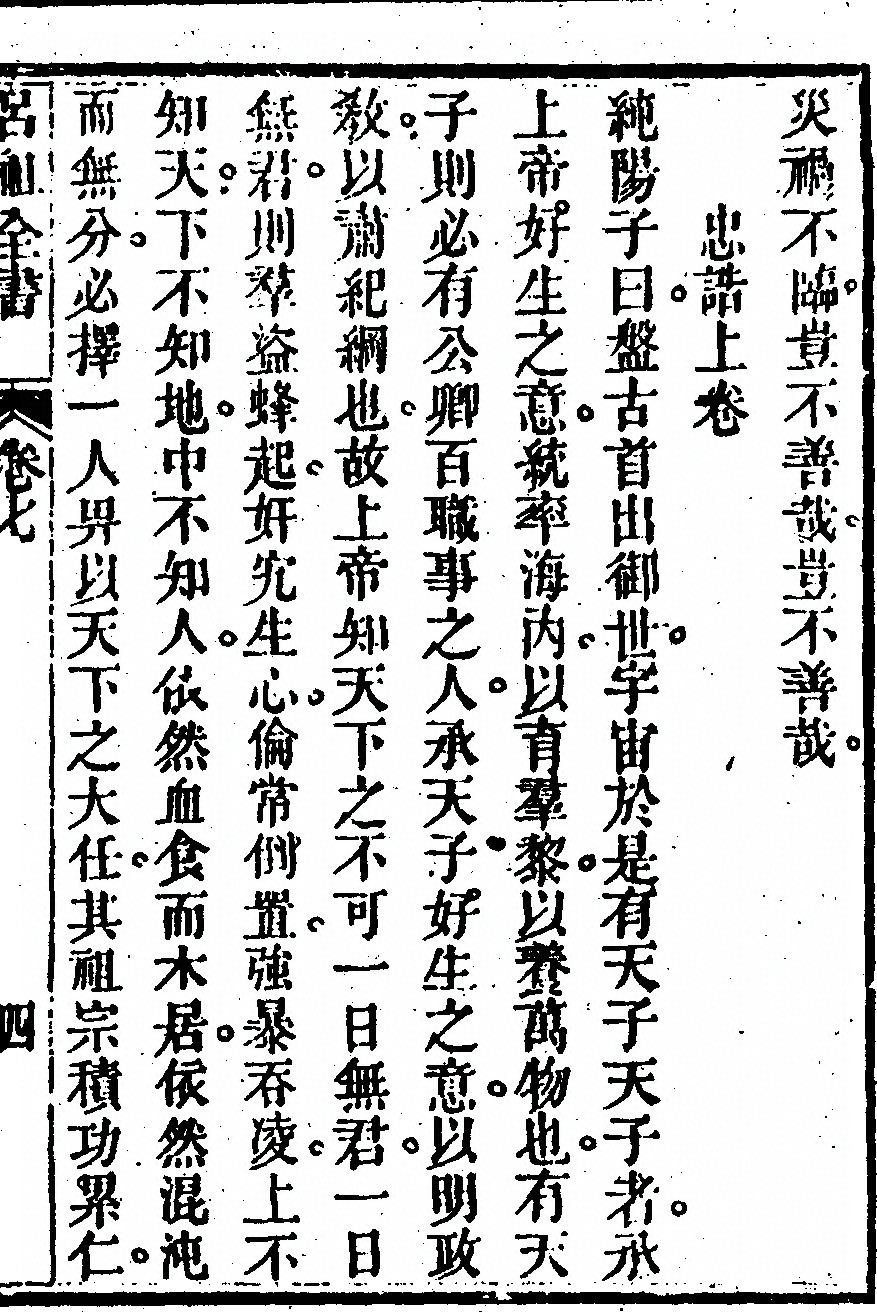 災禍不臨豈不善哉豈不善哉
忠誥上卷
純陽子曰盤古首出御世宇宙於是有天子天子者承
上帝好生之意統率海內以育羣黎以養萬物也有天
子則必有公卿百職事之人承天子好生之意以明政
敎以肅紀綱也故上帝知天下之不可一日無君一日
無君則羣盜蜂起奸宄生心倫常倒置強暴吞凌上不
知天下不知地中不知人依然血食而木居依然混沌
而無分必擇一人畀以天下之大任其祖宗積功累仁
呂祖全書
卷七
四